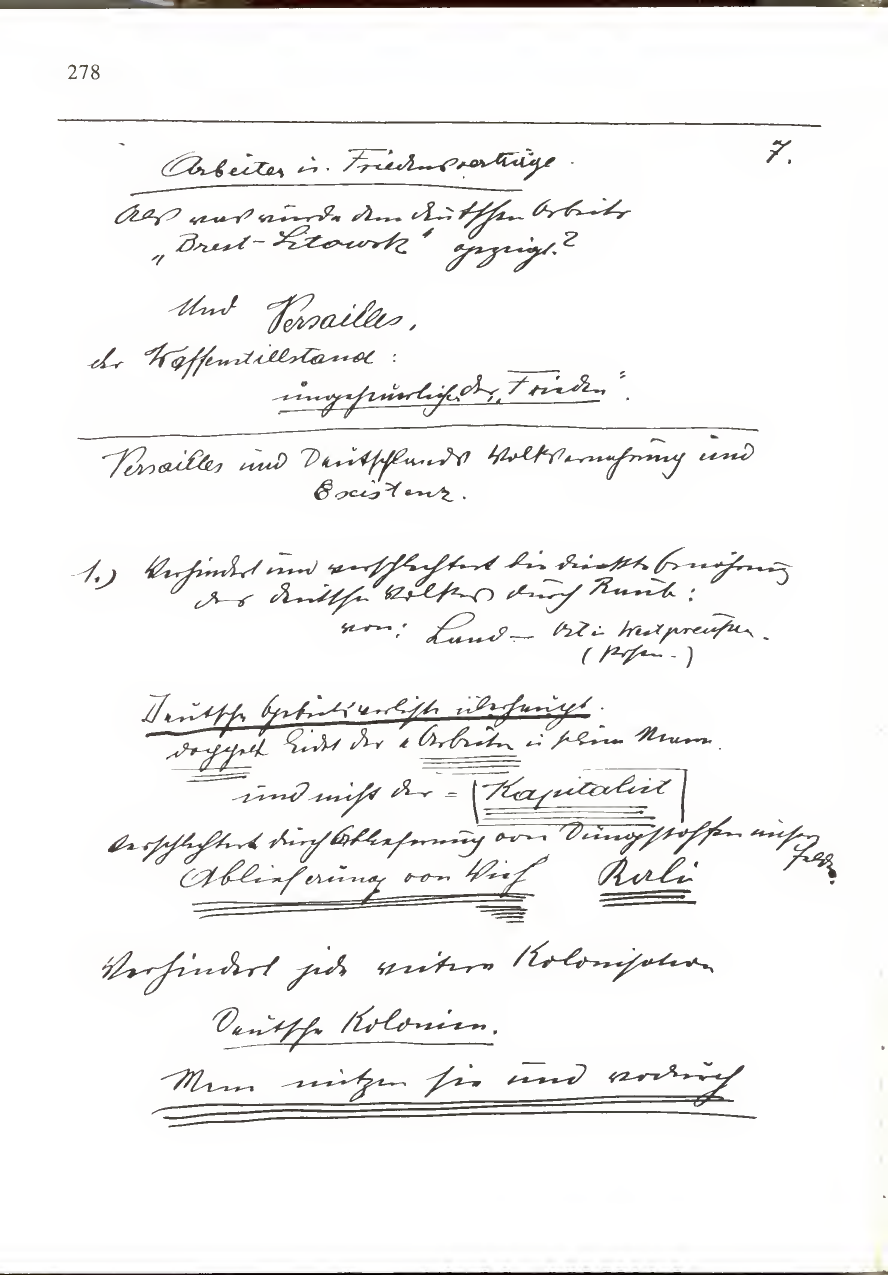 278
7.
Arbeiter u. Friedensverträge.
Als was wurde dem deutschen Arbeiter
„Brest-Litowsk" gezeigt?
Und Versailles,
der Waffenstillstand:
ungeheuerliche der „Frieden".
Versailles und Deutschlands Volksernährung und
Existenz.
1.) Verhindert und verschlechtert die direkte Ernährung
des deutschen Volkes durch Raub:
von: Land – Ost u Westpreußen.
(Posen –)
Deutsche Gebietsverluste überhaupt.
doppelt leidet der Arbeiter u kleine Mann
und nicht der = Kapitalist
Verschlechtert durch Ablieferung von Düngstoffen unsere
Felder.
Ablieferung von Vieh Kali
Verhindert jede weitere Kolonisation
Deutsche Kolonien.
Wem nützen sie und wodurch